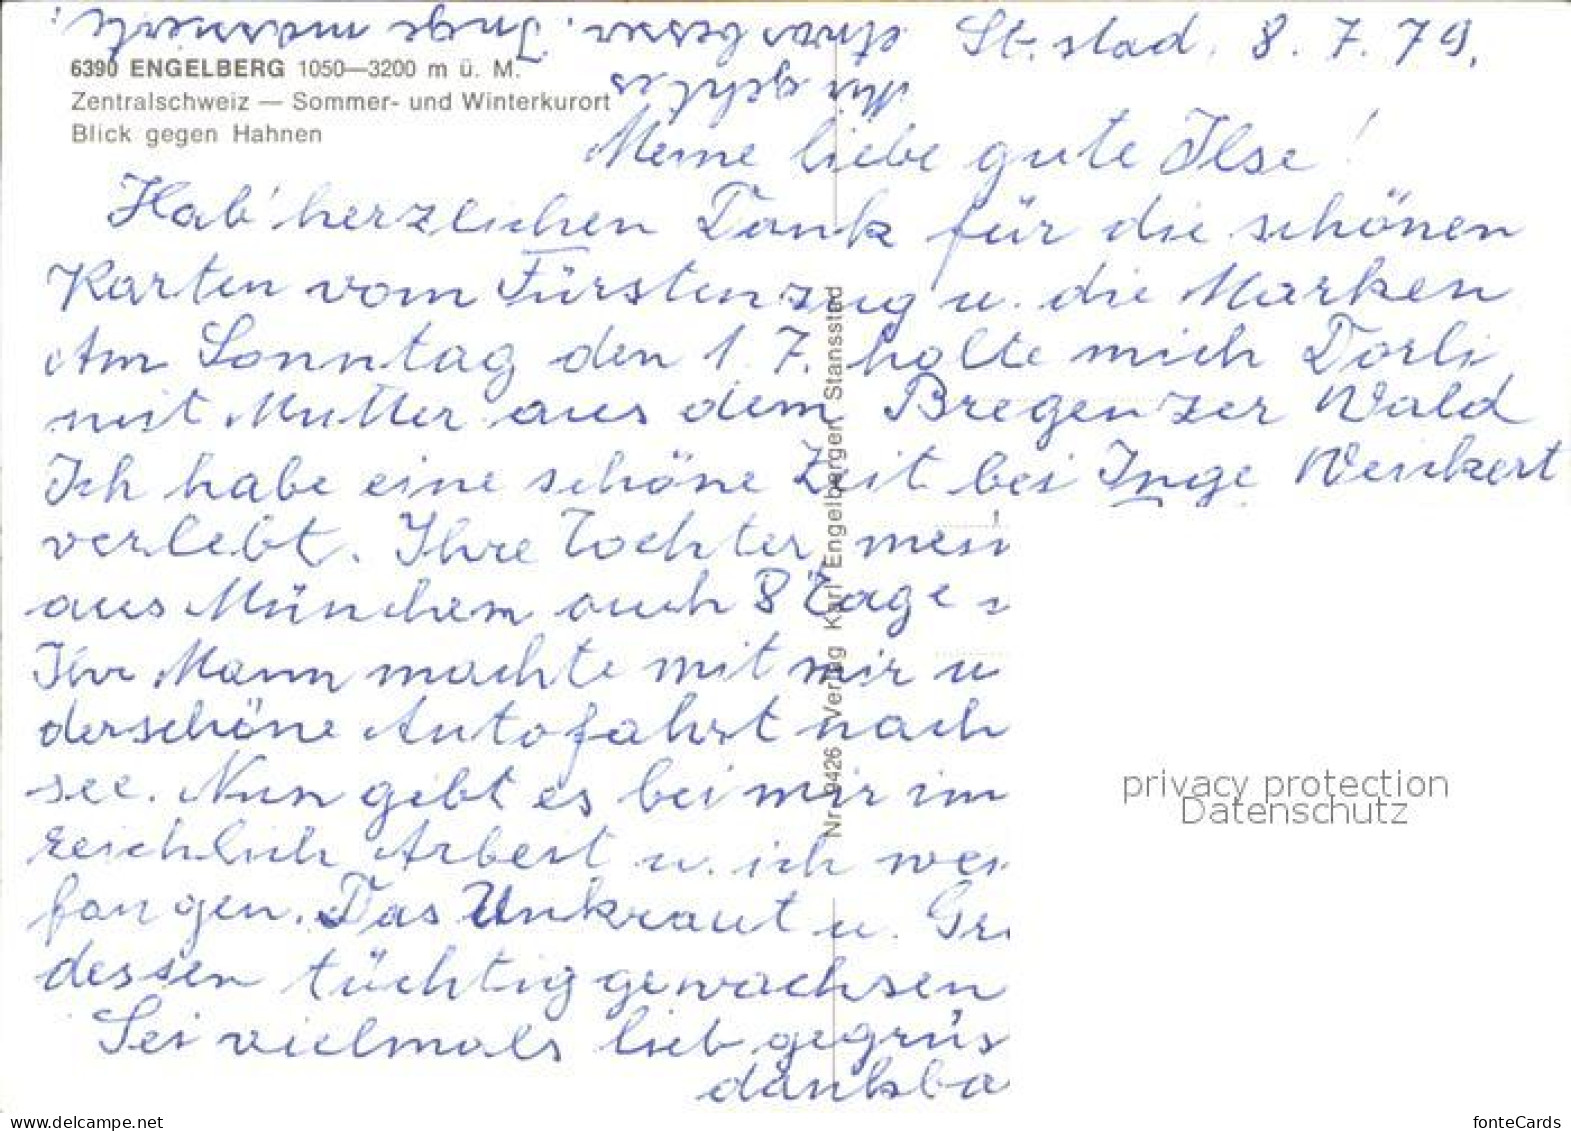 St. stad, 8. 7. 79.
6390 ENGELBERG 1050—3200 m ü. M.
Zentralschweiz — Sommer- und Winterkurort
Blick gegen Hahnen
Meine liebe gute Ilse!
Hab' herzlichen Dank für die schönen
Karten vom Fürstenzug u. die Marken
Am Sonntag den 1. 7. holte mich Dorli
mit Mutter aus dem Bregenzer Wald
Ich habe eine schöne Zeit bei Inge Weickert
verlebt. Ihre Tochter, mei
aus München auch 8 Tage
Ihr Mann machte mit mir u
derschöne Autofahrt nach
see. Nun gibt es bei mir im
reichlich Arbeit u. ich wei
fangen. Das Unkraut u. Gr
dessen tüchtig gewachsen
Sei vielmals lieb gegrüs
dankba
Mir geht es
etwas besser. Inge massierte
Nr. 9426 Verlag Karl Engelberger, Stansstad
privacy protection
Datenschutz
www.delcampe.net
fonteCards